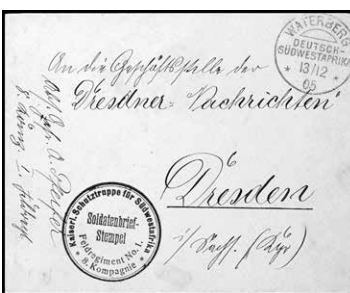 WATERBERG
DEUTSCH-
SÜDWESTAFRIKA
13/12
05
An die Geschäftsstelle der
"Dresdner Nachrichten"
Dresden
i/Sachs.
Kaiserl. Schutztruppe für Südwestafrika
Soldatenbrief-
Stempel
Feldregiment No. 1.
8. Kompagnie